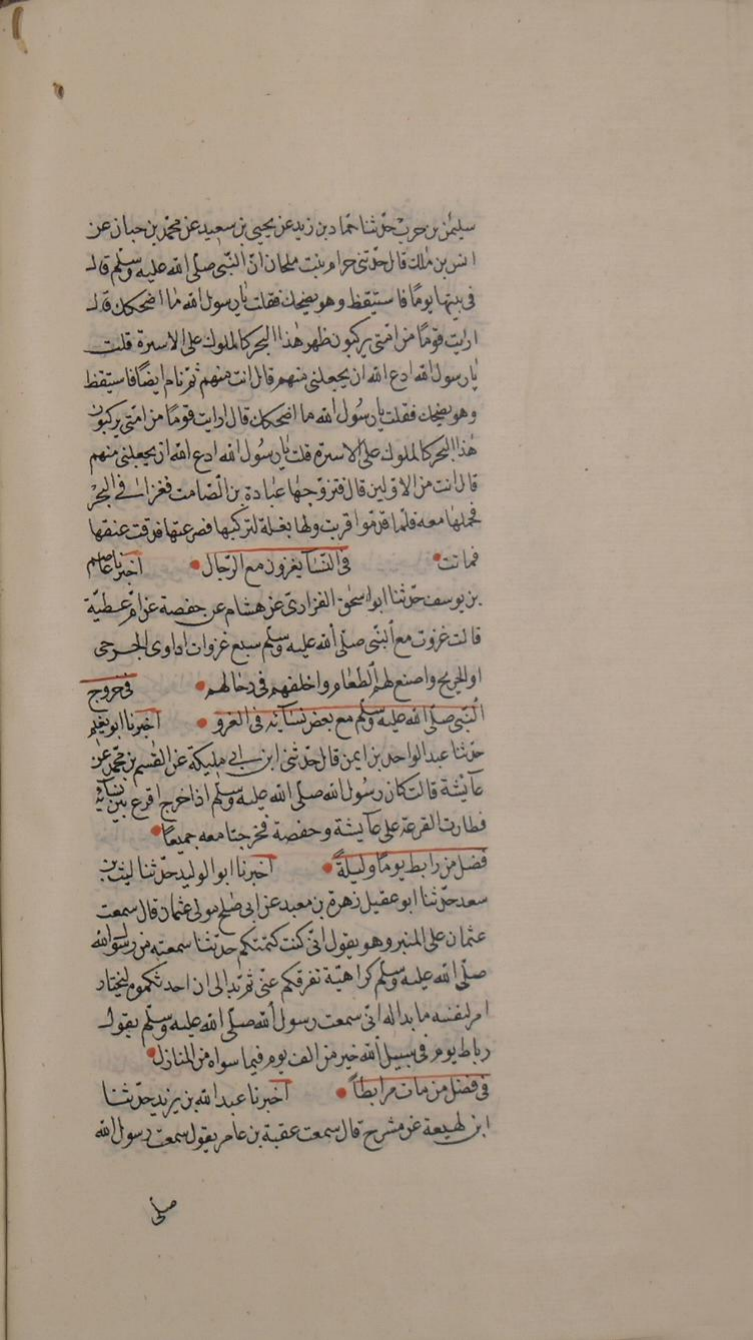 سليمٰن بن حرب حدّثنا حمّاد بن زيد عن يحيى بن سعيد عن محمّد بن حبان عن
انس بن مٰلك قال حدّثتنى حرام بنت ملحان انّ النّبى صلّى الله عليه وسلّم قال
فى بيتها يومًا فاستيقظ وهو يضحك فقلت يٰا رسول الله مٰا اضحكك قال
ارايت قومًا من امّتى يركبون ظهر هٰذا البحر كالملوك على الاسرة قلت
يٰا رسول الله ادع الله ان يجعلنى منهم قال انت منهم ثمّ نام ايضًا فاستيقظ
وهو يضحك فقلت يٰا رسُول الله ما اضحكك قال ارايت قومًا من امّتى يركبون
هٰذا البحر كالملوك على الاسرة قلت يٰا رسُول الله ادع الله ان يجعلنى منهم
قال انت من الاوّلين قال فتزوّجهٰا عبٰادة بن الصّامت فغزا فى البحر
فحملهٰا معه فلمّا قدموا قربت لهٰا بغلة لتركبها فصرعتها فدقت عنقها
فماتت فى النّسآء يغزون مع الرّجال اخبرنا عاصم
بن يوسف حدّثنا ابو اسحٰق الفزارىّ عن هشام عن حفصة عن امّ عطيّة
قالت غزوت مع النّبى صلّى الله عليه وسلّم سبع غزوات اداوى الجرحى
او الجريح واصنع لهم الطعٰام واخلفهم فى رحٰالهم فى خروج
النّبى صلّى الله عليه وسلّم مع بعض نسآئه فى الغزو اخبرنا ابو نعيم
حدّثنا عبد الواحد بن ايمن قال حدّثنى ابن ابى مليكة عن القٰسم بن محمّد عن
عآيشة قالت كان رسُول الله صلّى الله عليه وسلّم اذا خرج اقرع بين نسآئه
فطارت القرعة على عآيشة وحفصة فخرجتا معه جميعًا
فضل من رابط يومًا وليلةً اخبرنا ابو الوليد حدّثنا ليث بن
سعد حدّثنا ابو عقيل زهرة بن معبد عن ابى صٰلح مولى عثمان قال سمعت
عثمان على المنبر وهو يقول انّى كنت كتمتكم حديثا سمعته من رسُول الله
صلّى الله عليه وسلّم كراهيّة تفرقكم عنّى ثمّ بدا لى ان احدثكموه ليختار
امرء لنفسه ما بدا له انّى سمعت رسول الله صلّى الله عليه وسلّم يقول
رباط يوم فى سبيل الله خير من الف يوم فيما سواه من المنازل
فى فضل من مات مرابطاً اخبرنا عبد الله بن يزيد حدّثنا
ابن لهيعة عن مشرح قال سمعت عقبة بن عامر يقول سمعت رسول الله
صلّى